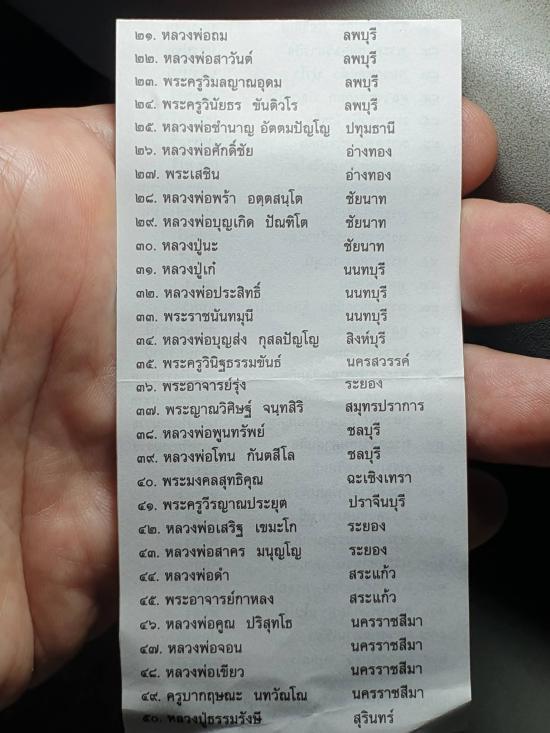 ๒๑. หลวงพ่อถม ลพบุรี
๒๒. หลวงพ่อสาวันต์ ลพบุรี
๒๓. พระครูวิมลญาณอุดม ลพบุรี
๒๔. พระครูวินัยธร ขันติวโร ลพบุรี
๒๕. หลวงพ่อชำนาญ อัตตมปัญโญ ปทุมธานี
๒๖. หลวงพ่อศักดิ์ชัย อ่างทอง
๒๗. พระเสชิน อ่างทอง
๒๘. หลวงพ่อพร้า อตฺตสนฺโต ชัยนาท
๒๙. หลวงพ่อบุญเกิด ปัณฑิโต ชัยนาท
๓๐. หลวงปู่นะ ชัยนาท
๓๑. หลวงปู่เก๋ นนทบุรี
๓๒. หลวงพ่อประสิทธิ์ นนทบุรี
๓๓. พระราชนันทมุนี นนทบุรี
๓๔. หลวงพ่อบุญส่ง กุสลปัญโญ สิงห์บุรี
๓๕. พระครูวินิฐธรรมขันธ์ นครสวรรค์
๓๖. พระอาจารย์รุ่ง ระยอง
๓๗. พระญาณวิศิษฐ์ จนฺทสิริ สมุทรปราการ
๓๘. หลวงพ่อพูนทรัพย์ ชลบุรี
๓๙. หลวงพ่อโทน กันตสีโล ชลบุรี
๔๐. พระมงคลสุทธิคุณ ฉะเชิงเทรา
๔๑. พระครูวีรญาณประยุต ปราจีนบุรี
๔๒. หลวงพ่อเสริฐ เขมะโก ระยอง
๔๓. หลวงพ่อสาคร มนุญโญ ระยอง
๔๔. หลวงพ่อดำ สระแก้ว
๔๕. พระอาจารย์กาหลง สระแก้ว
๔๖. หลวงพ่อคูณ ปริสุทโธ นครราชสีมา
๔๗. หลวงพ่อจอน นครราชสีมา
๔๘. หลวงพ่อเขียว นครราชสีมา
๔๙. ครูบากฤษณะ นทวัณโณ นครราชสีมา
๕๐. หลวงปู่ธรรมรังษี สุรินทร์